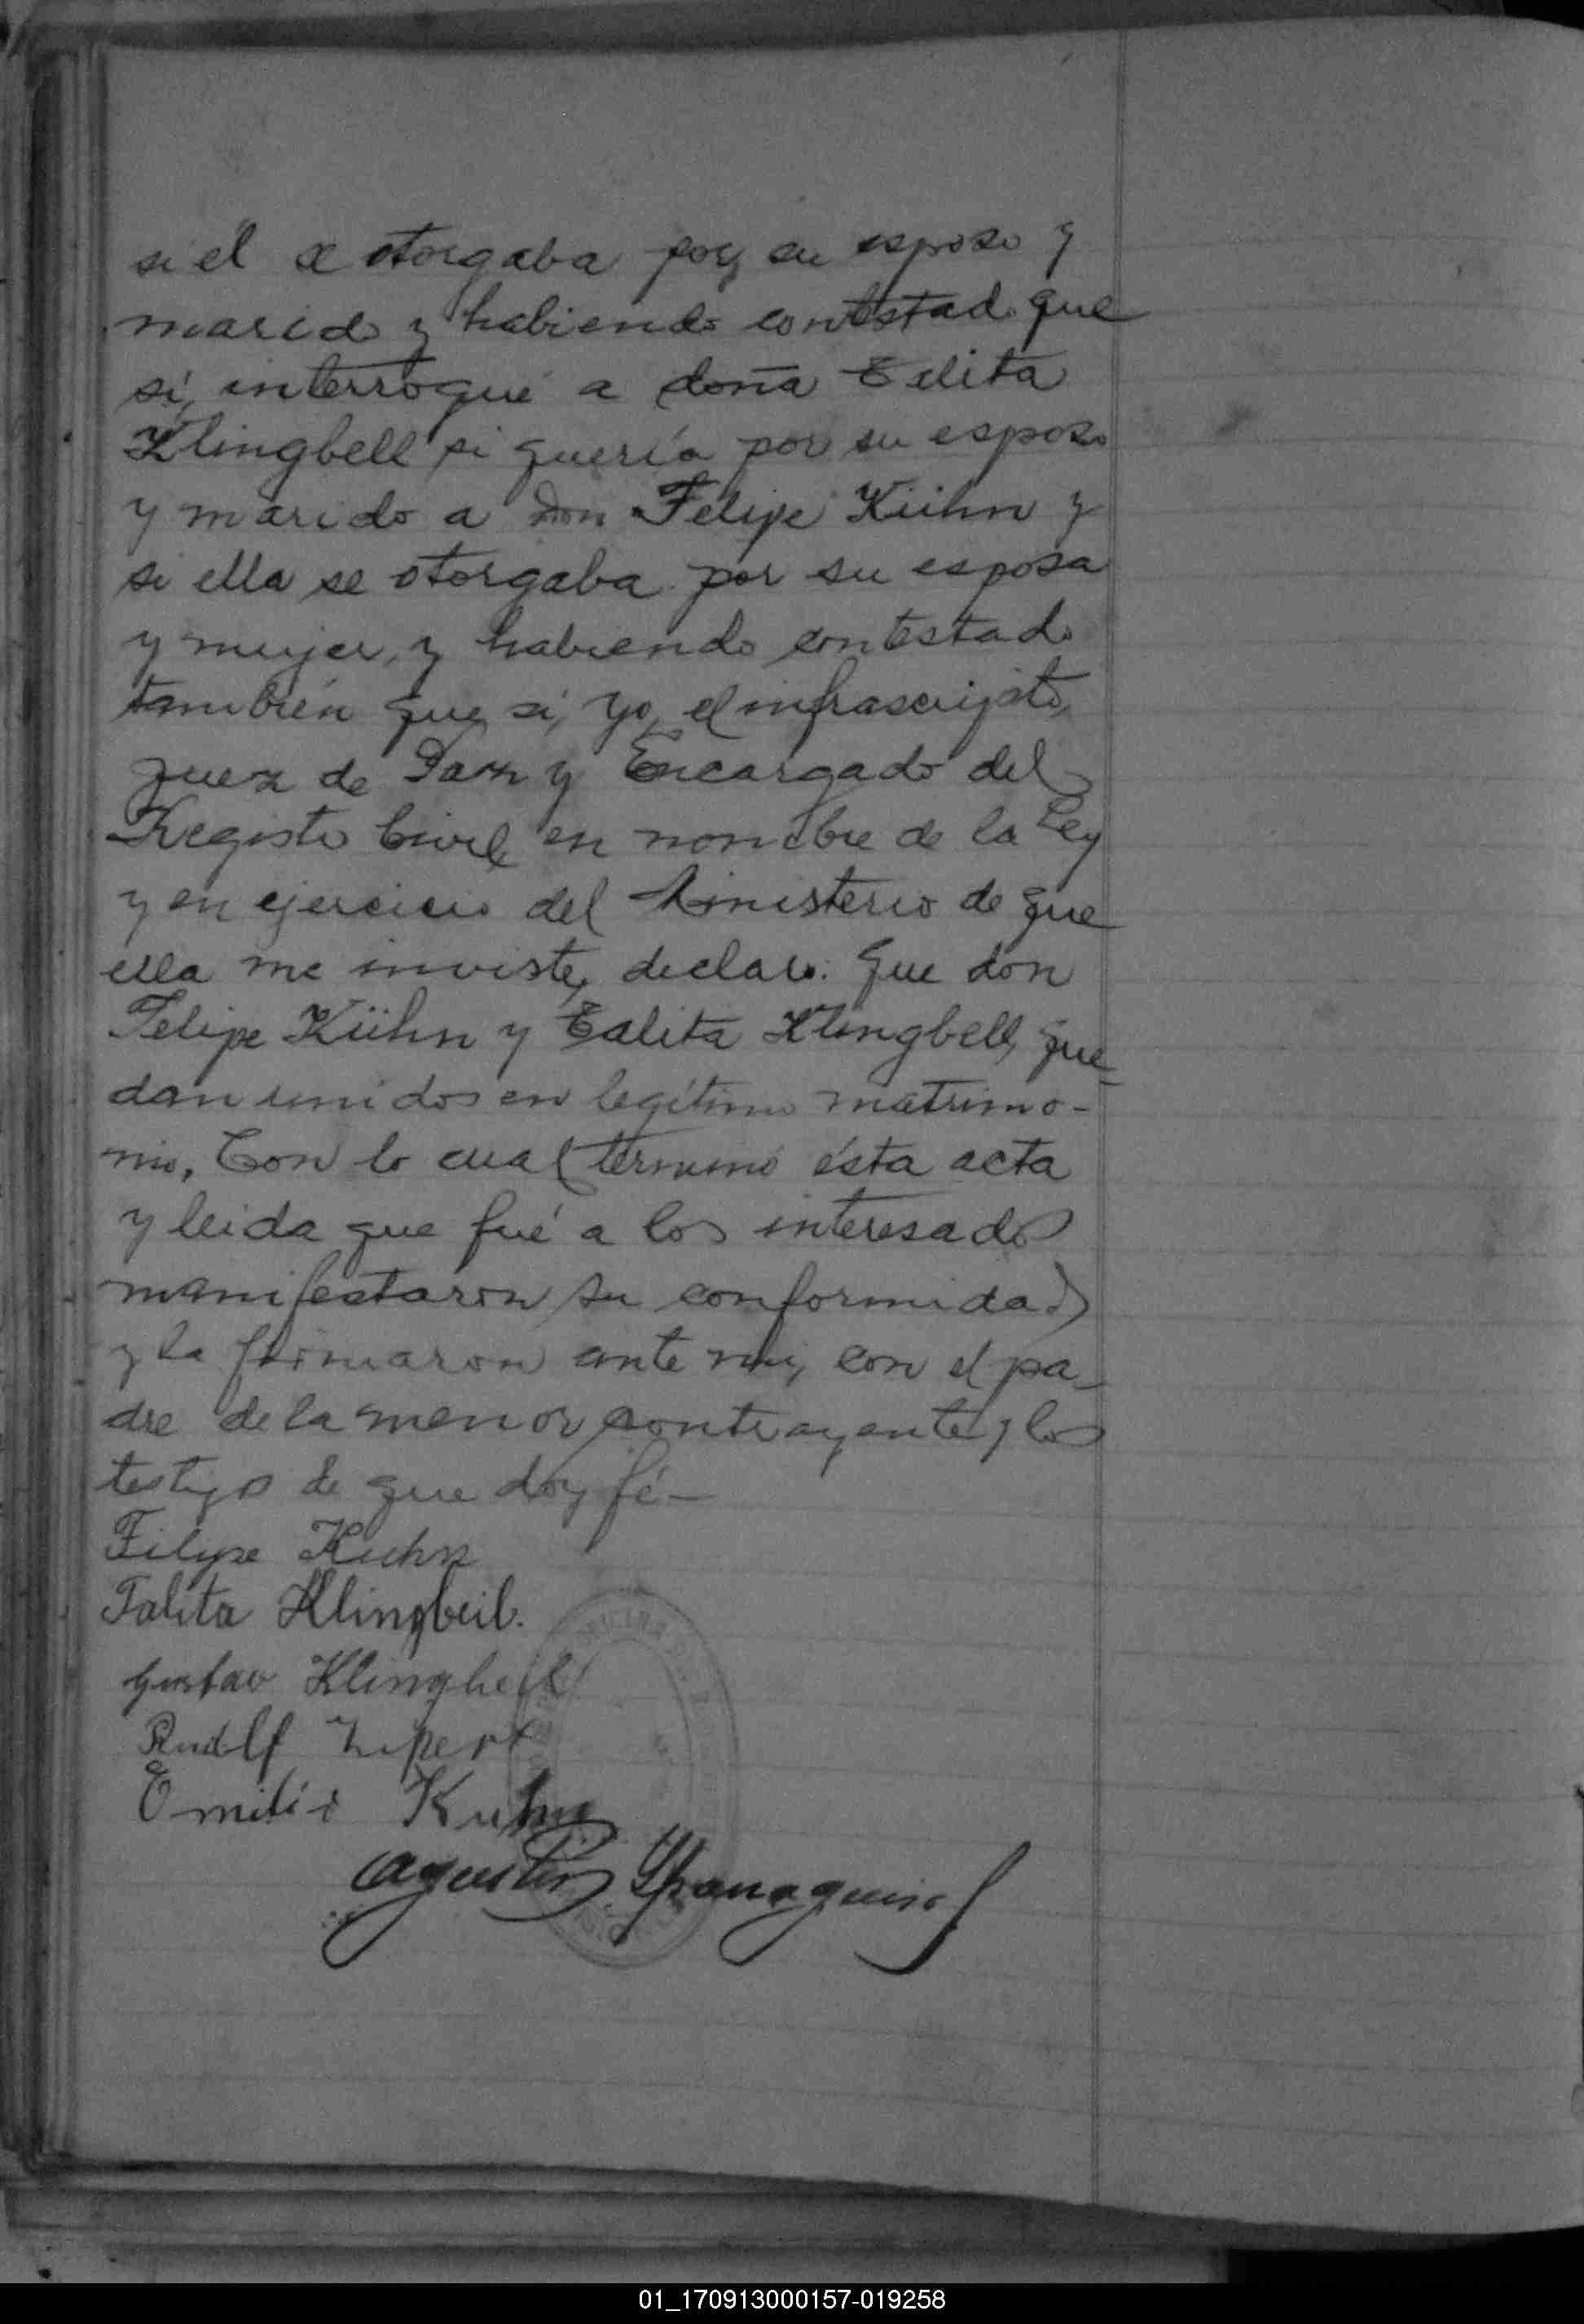 si el se otorgaba por su esposo y
marido y habiendo contestado que
sí, interrogué a doña Edita
Klingbell si quería por su esposo
y marido a don Felipe Kühn y
si ella se otorgaba por su esposa
y mujer, y habiendo contestado
también que sí, yo, el infrascripto,
Juez de Paz y Encargado del
Registo Civil, en nombre de la Ley
y en ejercicio del Ministerio de que
ella me inviste, declaro: que don
Felipe Kühn y Talita Klingbell, que-
dan unidos en legítimo matrimo-
nio. Con lo cual terminó ésta acta
y leida que fué a los interesados
manifestaron su conformidad
y la firmaron ante mi, con el pa-
dre de la menor contrayente y los
testigos de que doy fé—
Felipe Kuhn
Talita Klingbeil.
Gustav Klingbeil
Rudolf
Emilio Kuhn
Agustín
01_170913000157-019258